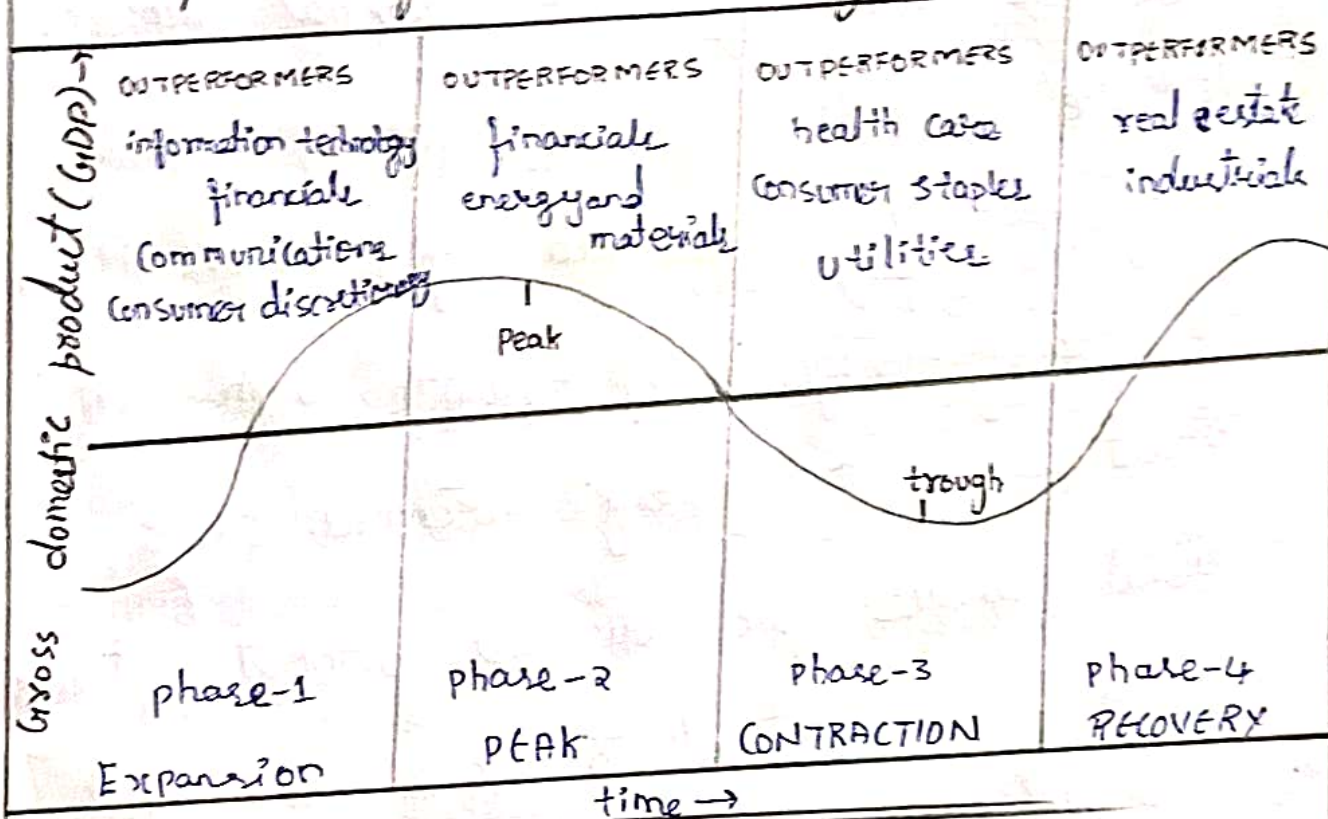 Gross domestic product (GDP)→
OUTPERFORMERS
information technology
financials
Communications
Consumer discretionary
OUTPERFORMERS
financials
energy and
materials
Peak
OUTPERFORMERS
health care
Consumer staples
utilities
trough
OUTPERFORMERS
real estate
industrials
phase-1
Expansion
phase-2
PEAK
phase-3
CONTRACTION
phase-4
RECOVERY
time →